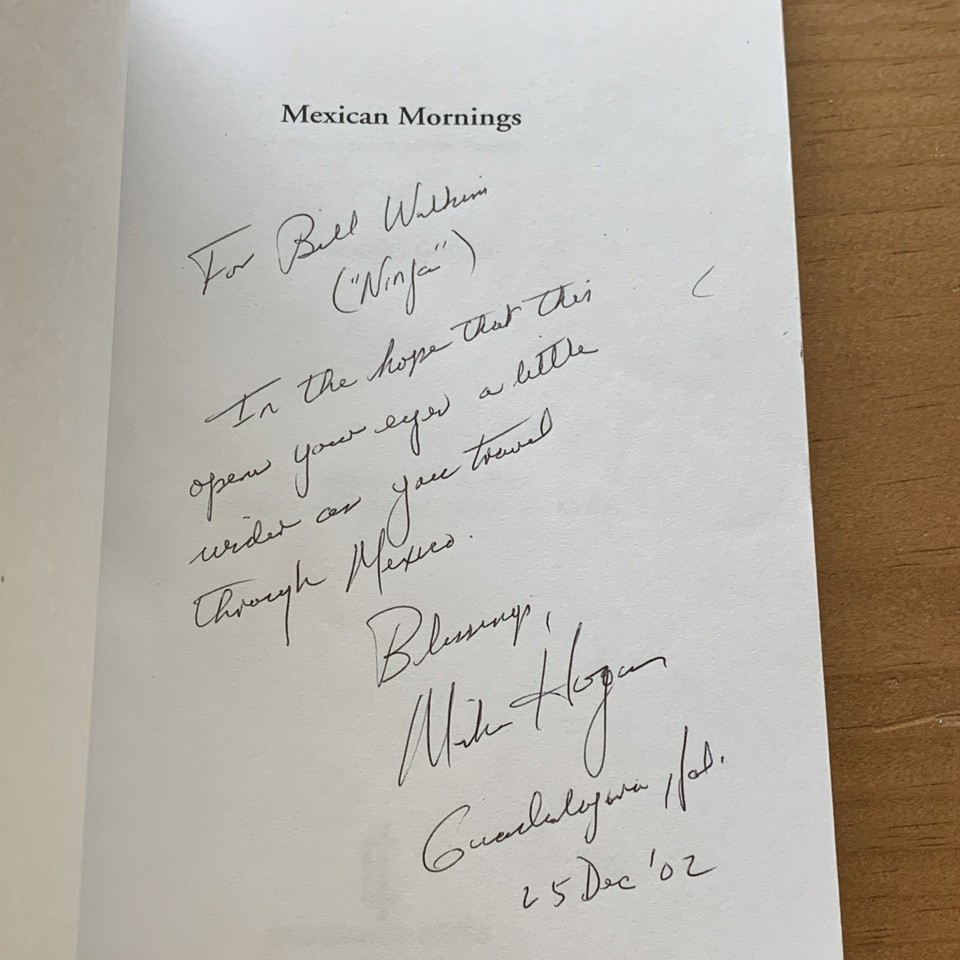 Mexican Mornings
For Bill
("Ninja")
In the hope that this
opens your eyes a little
wider as you travel
through Mexico.
Blessings,
Mike Hogan
Guadalajara, Jal.
25 Dec '02